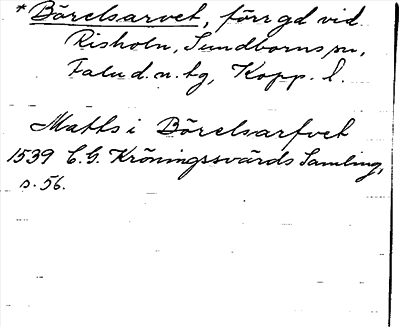 * Börelsarvet, förr gd vid
Risholn, Sundborns sn,
Falu d.n. tg, Kopp. l.
Matts i Börelsarfvet
1539 C.G. Kröningssvärds Samling,
s. 56.